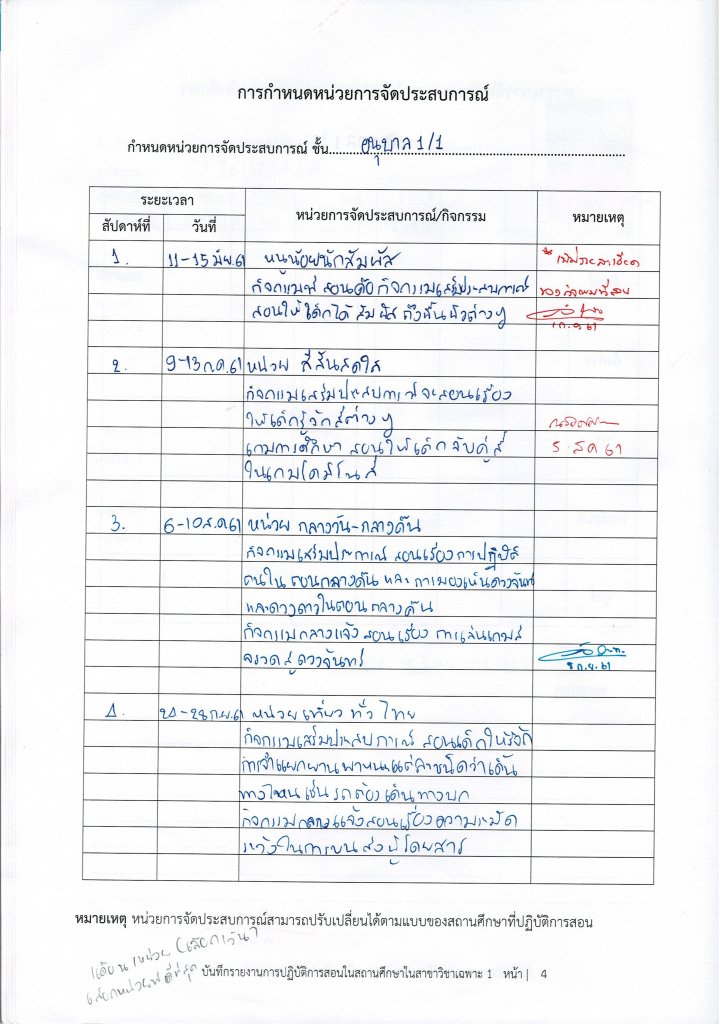 การกำหนดหน่วยการจัดประสบการณ์
กำหนดหน่วยการจัดประสบการณ์ ชั้น อนุบาล 1/1
ระยะเวลา หน่วยการจัดประสบการณ์/กิจกรรม หมายเหตุ
สัปดาห์ที่ วันที่
1. 11-15 มิ.ย.61 หนูน้อยนักสัมผัส
กิจกรรมที่สอนคือ กิจกรรมเสริมประสบการณ์
สอนให้เด็กได้สัมผัสถึงพื้นผิวต่างๆ
2. 9-13 ก.ค.61 หน่วย สีสันสดใส
กิจกรรมเสริมประสบการณ์จะสอนเรื่อง
ให้เด็กรู้จักสีต่างๆ
เกมการศึกษา สอนให้เด็กจับคู่สี 5 ส.ค 61
ในเกมโดมิโนสี
3. 6-10 ส.ค 61 หน่วย กลางวัน-กลางคืน
กิจกรรมเสริมประการณ์ สอนเรื่องการปฏิบัติ
ตนใน ตอนกลางคืน และ การมองเห็นดวงจันทร์
และดวงดาวในตอนกลางคืน
กิจกรรมกลางแจ้ง สอนเรื่อง การเล่นเกมส์
จรวดสู่ดวงจันทร์
4. 24-28 ก.ย.61 หน่วย เที่ยว ทั่ว ไทย
กิจกรรมเสริมประสบการณ์ สอนเด็กให้รู้จัก
การจำแยกยานพาหนะแต่ละชนิดว่าเดิน
ทางไหน เช่น รถต้องเดินทางบก
กิจกรรมกลางแจ้งสอนเรื่องความระมัด
ระวังในการขนส่งผู้โดยสาร
หมายเหตุ หน่วยการจัดประสบการณ์สามารถปรับเปลี่ยนได้ตามแบบของสถานศึกษาที่ปฏิบัติการสอน
บันทึกรายงานการปฏิบัติการสอนในสถานศึกษาในสาขาวิชาเฉพาะ 1 หน้า | 4